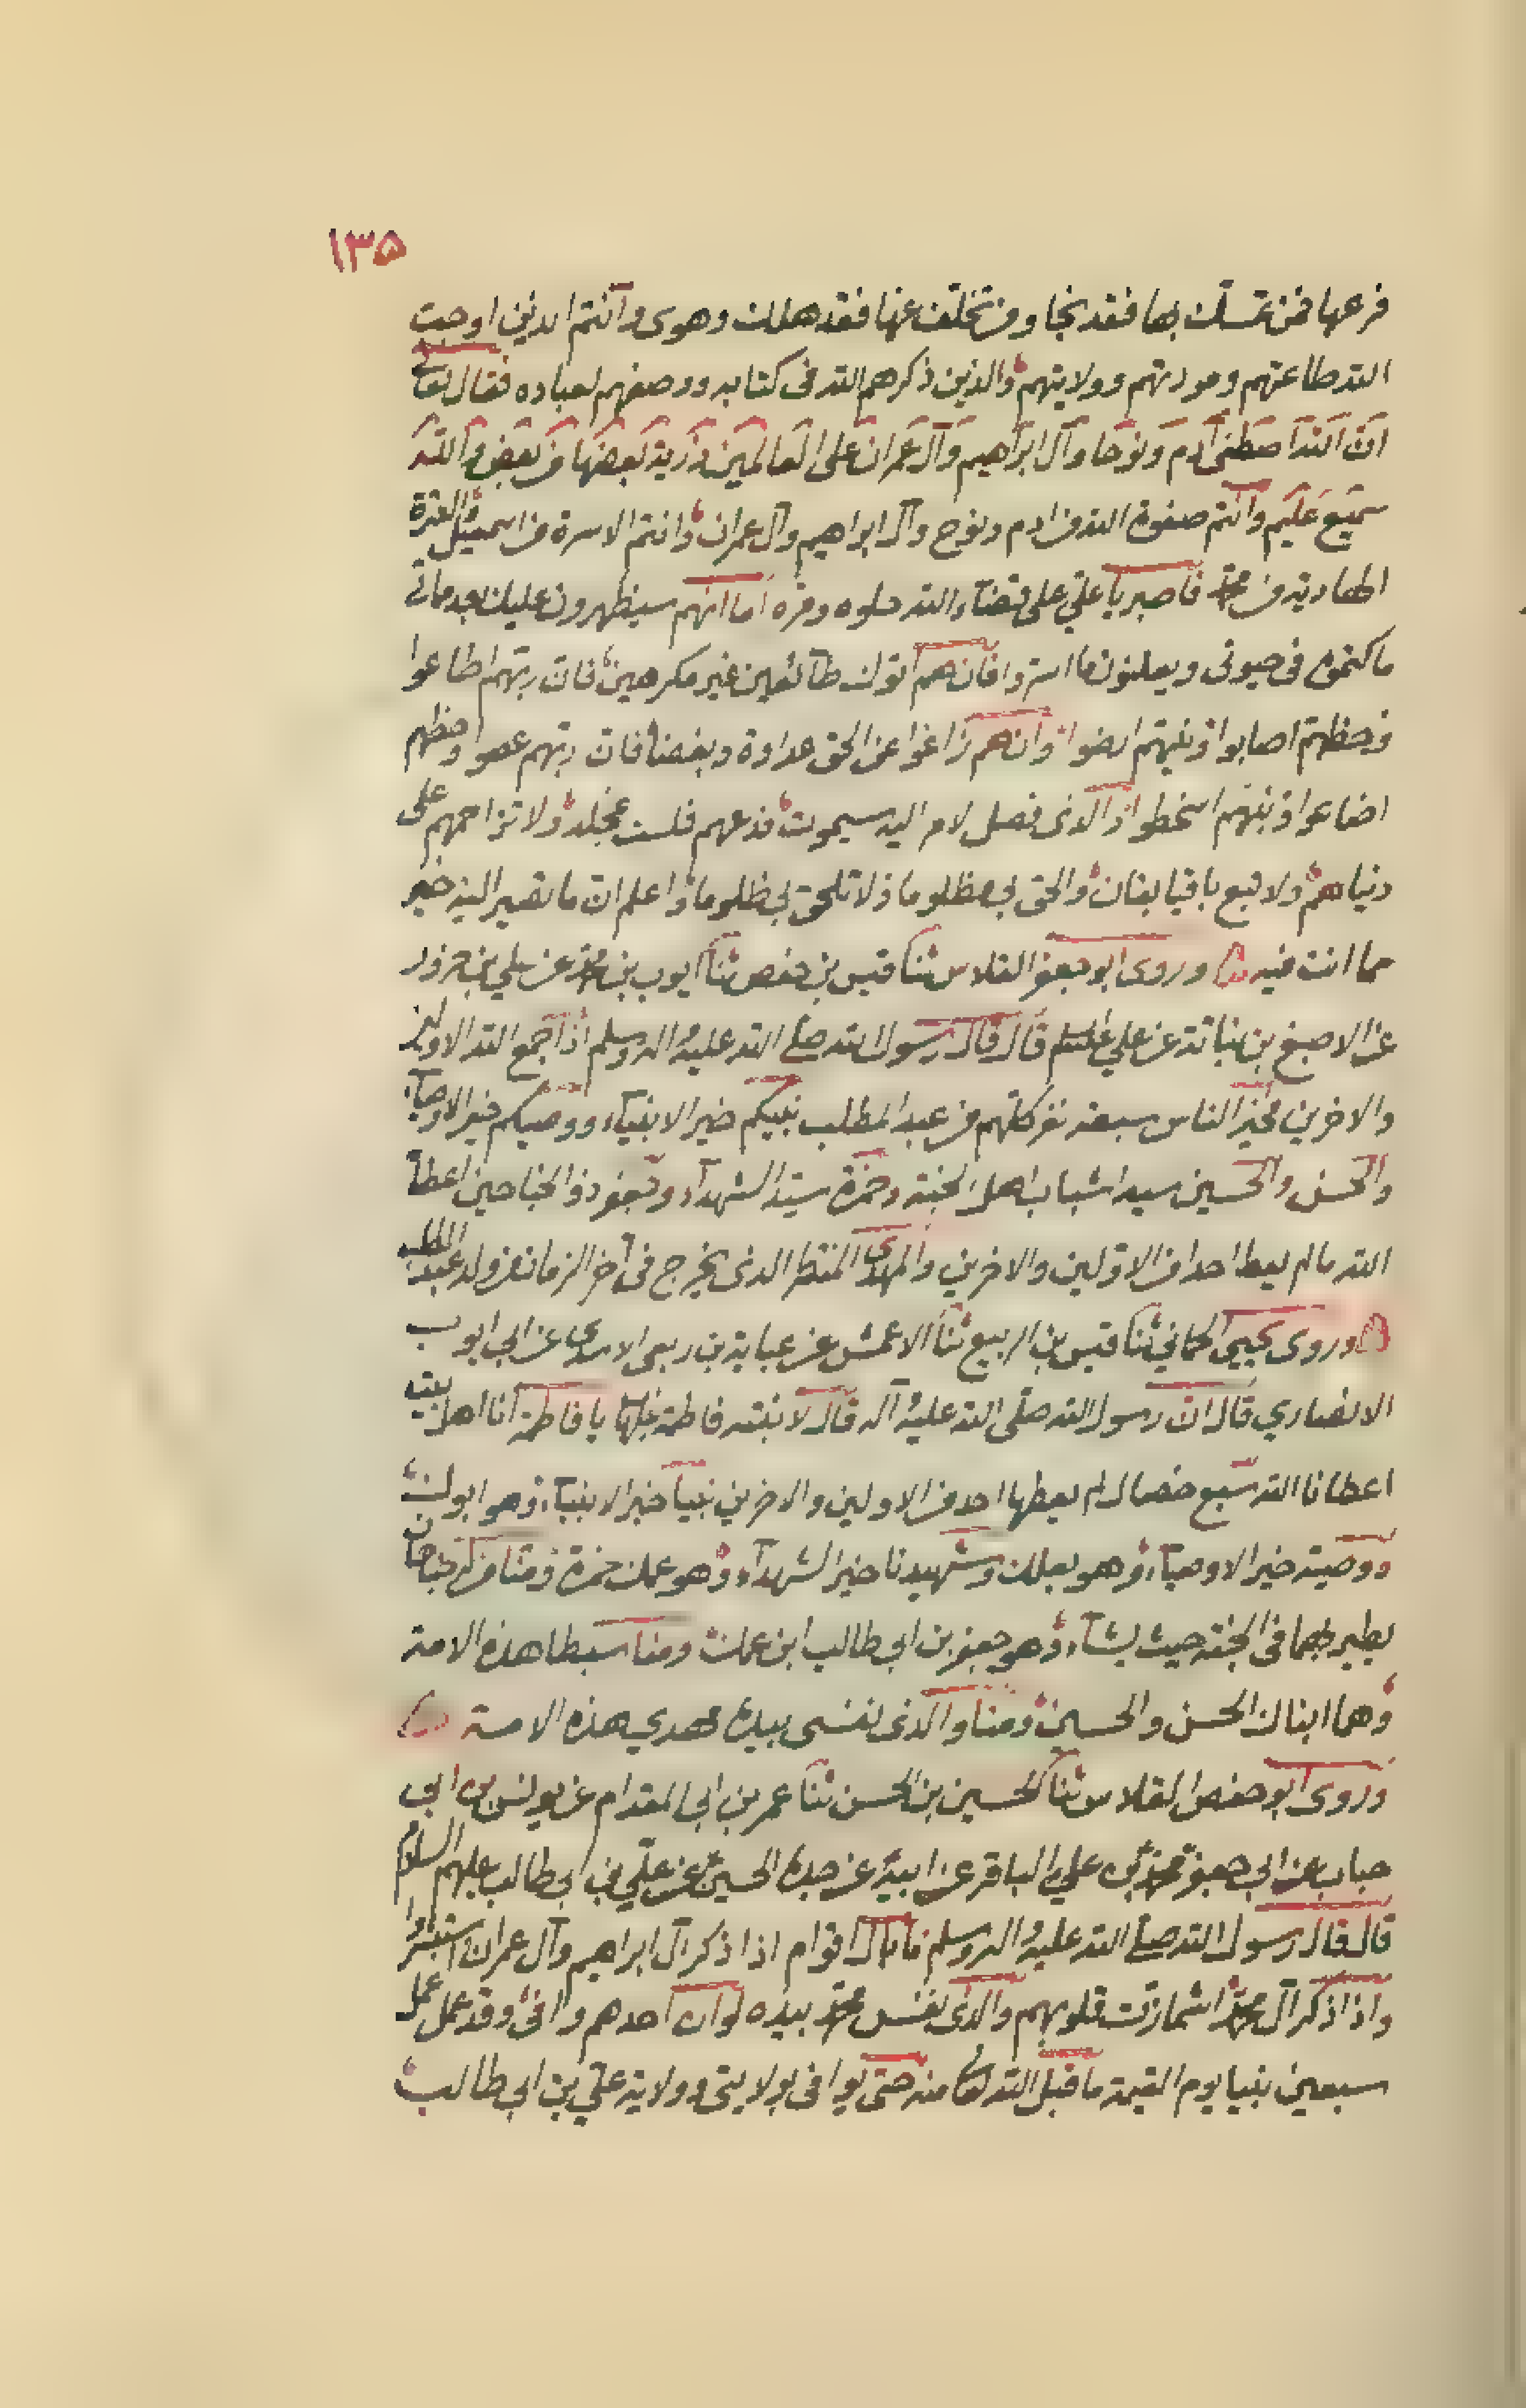 ١٣۵
فرعها فمن تمسك بها فقد نجا ومن تخلف عنها فقد هلك وهوى وانتم الذين اوجبت
الله طاعتهم ومودتهم وولايتهم والذين ذكرهم الله فى كتابه ووصفهم لعباده فقال تعالى
ان الله اصطفى آدم ونوحا وآل ابراهيم وآل عمران على العالمين ذرية بعضها من بعض والله
سميع عليم وانتم صفوة الله من ادم ونوح وآل ابراهيم وآل عمران وانتم الاسرة من اسمعيل والعترة
الهادية من محمد فاصبر يا علي على قضآء الله حلوه ومره اما انهم سيظهرون عليك بعدماتى
ما كتموه فى حيوتى ويعلنون ما اسروا فان هم اتوك طآئعين غير مكرهين فان ربهم اطاعوا
وحظهم اصابوا ونبيهم ارضوا وان هم زاغوا عن الحق عداوة وبغضا فان ربهم عصوا وحظهم
اضاعوا ونبيهم اسخطوا والذى فصل لام اليه سيموت فدعهم فلست بمخلد ولا تزاحمهم على
دنياهم ولا تبع باقيا بفان والحق بى مظلوما ولا تلحق بى ظلوما واعلم ان ما تصير اليه خير
مما انت فيه وروى ابو جعفر القلاس ثنا قيس بن حفص ثنا ايوب بن محمد عن علي بن حزور
عن الاصبغ بن نباتة عن علي عليه السلم قال قال رسول الله صلى الله عليه واله وسلم اذا جمع الله الاولين
والاخرين فخير الناس سبعة نفر كلهم من عبد المطلب نبيكم خير الانبيآء ووصيكم خير الاوصيآء
والحسن والحسين سيدا شباب اهل الجنة وحمزة سيد الشهدآء وجعفر ذو الجناحين اعطا
الله ما لم يعط احدا من الاولين والاخرين والمهدى المنتظر الذى يخرج فى آخر الزمان من ولد عبد المطلب
وروى يحيى الحماني ثنا قيس بن الربيع ثنا الاعمش عن عباية بن ربعى الاسدى عن ابى ايوب
الانصاري قال ان رسول الله صلى الله عليه وآله قال لابنته فاطمة عليها يا فاطمة انا اهل بيت
اعطانا الله سبع خصال لم يعطها احد من الاولين والاخرين نبينا خير الانبيآء وهو ابوك
ووصيه خير الاوصيآء وهو بعلك وشهيدنا خير الشهدآء وهو عمك حمزة ومنا من له جناحان
يطير بهما فى الجنة حيث يشآء وهو جعفر بن ابى طالب ابن عمك ومنا سبطا هذه الامة
وهما ابناك الحسن والحسين ومنا والذى نفسى بيده مهدي هذه الامة
وروى ابو حفص القلاس ثنا الحسين بن الحسن ثنا عمر بن ابى المقدام عن يونس بن ابى
حباب عن ابى جعفر محمد بن علي الباقر عن ابيه عن جده الحسين عن علي بن ابى طالب عليهم السلام
قال قال رسول الله صلى الله عليه واله وسلم ما بال اقوام اذا ذكر آل ابراهيم وآل عمران استبشروا
واذا ذكر آل محمد اشمازت قلوبهم والذى نفس محمد بيده لو ان احدهم وافى وقد عمل عمل
سبعين نبيا يوم القيمة ما قبل الله تعالى منه حتى يوافى بولايتى وولاية علي بن ابى طالب